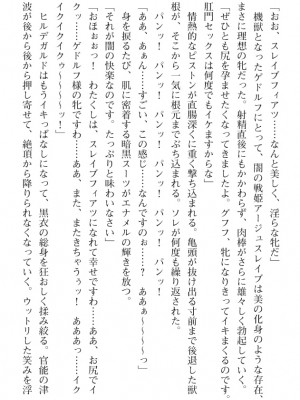 「おお、スレイブフィアツ……なんと美しく、淫らな牝だ」
機獣となったゲドルフにとって、闇の戦姫アージュスレイブは美の化身のような存在、
まさに理想の牝だった。射精直後にもかかわらず、肉棒がさらに雄々しく勃起していく。
「ぜひとも尻を孕ませたくなってきましたよ。グフフ、牝になりきってイキまくるのです。
肛門セックスは何度でもイケますからな」
情熱的なピストンが直腸深くに重く撃ち込まれる。亀頭が抜け出る寸前まで後退した獣
根が、そこから一気に根元までぶち込まれる。ソレが何度も繰り返された。
パンッ！　パンッ！　パンッ！　パンッ！
「ああ、あぁん……すごい、この感じ……なんですのぉ……？　あああぁ～～～～っ」
身を捩るたび、肌に密着する暗黒スーツがエナメルの輝きを放つ。
「それが闇の快楽なのです。たっぷりと味わいなさい」
パンッ！　パンッ！　パンッ！　パンッ！
「おほぉぉっ！　わたくしは、スレイブフィアツになれて幸せですわ……ああ、お尻でイ
クッ……ゲドルフ様の牝ですわ……ああ、また、またきちゃうぅッ！　あああっ……イク
イクイクイクゥ～～～～～ッ！」
ヒルデガルドはもうイキっぱなしになって、黒衣の総身を狂おしく揉み絞る。官能の津
波が後から後から押し寄せて、絶頂から降りられなくなっていく。ウットリした笑みを浮